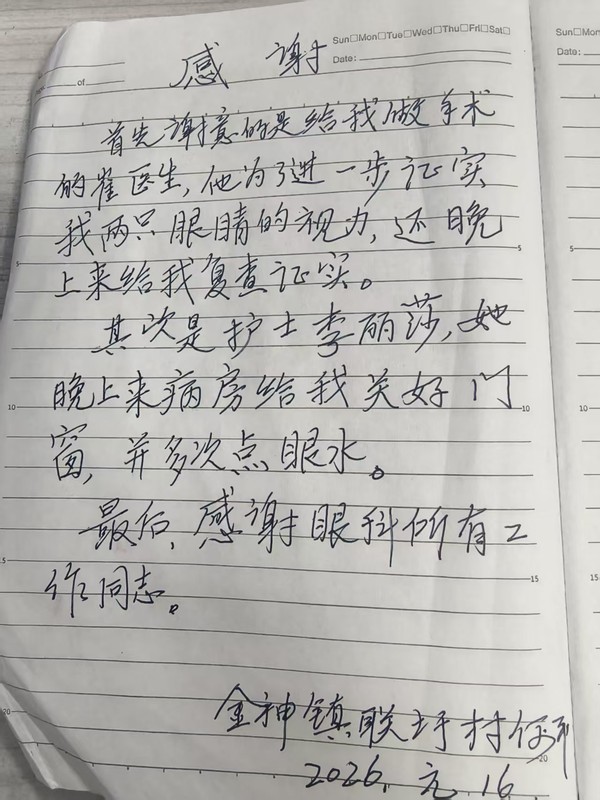 Sun□Mon□Tue□Wed□Thu□Fri□Sat□
Date:
of
Sun□Mo
Date:
感 谢
首先谢意的是给我做手术
的崔医生,他为了进一步证实
我两只眼睛的视力,还晚
上来给我复查证实。
其次是护士李丽莎,她
晚上来病房给我关好门
窗,并多次点眼水。
最后,感谢眼科所有工
作同志。
金神镇联圩村
2026.元.16
5
10
15
20
5
10
15
5
20